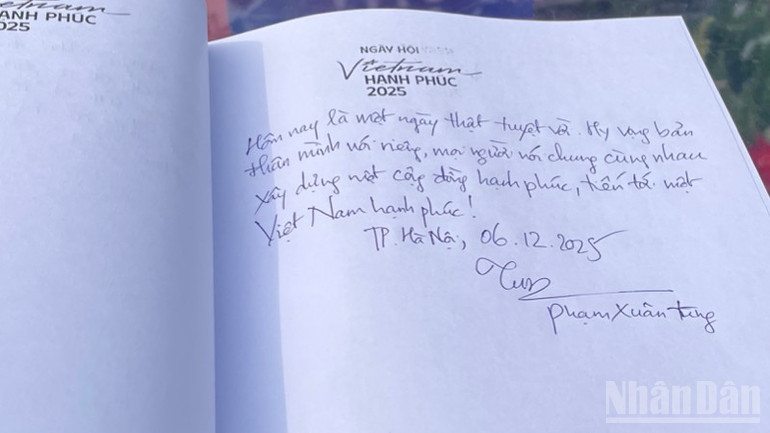 Vietnam
HẠNH PHÚC
2025
NGÀY HỘI
Vietnam
HẠNH PHÚC
2025
Hôm nay là một ngày thật tuyệt vời. Hy vọng bản
thân mình nói riêng, mọi người nói chung cùng nhau
xây dựng một cộng đồng hạnh phúc, tiến tới một
Việt Nam hạnh phúc!
TP. Hà Nội, 06.12.2025
Phạm Xuân Tùng
NhânDân